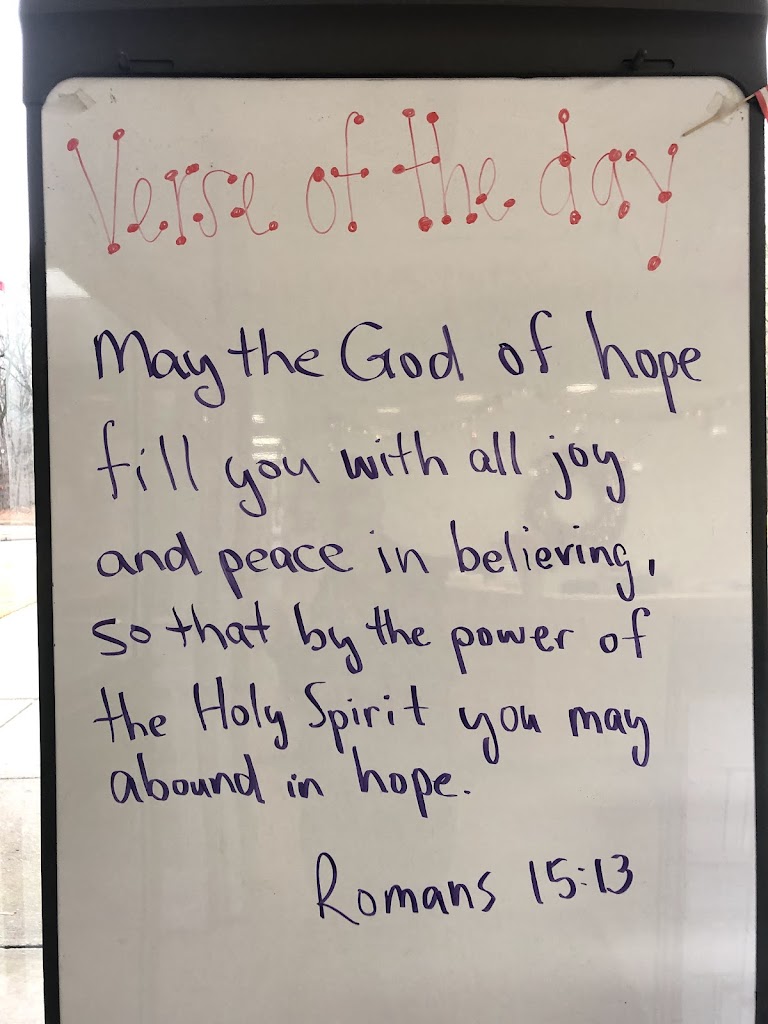 Verse of the day
May the God of hope
fill you with all joy
and peace in believing,
so that by the power of
the Holy Spirit you may
abound in hope.
Romans 15:13